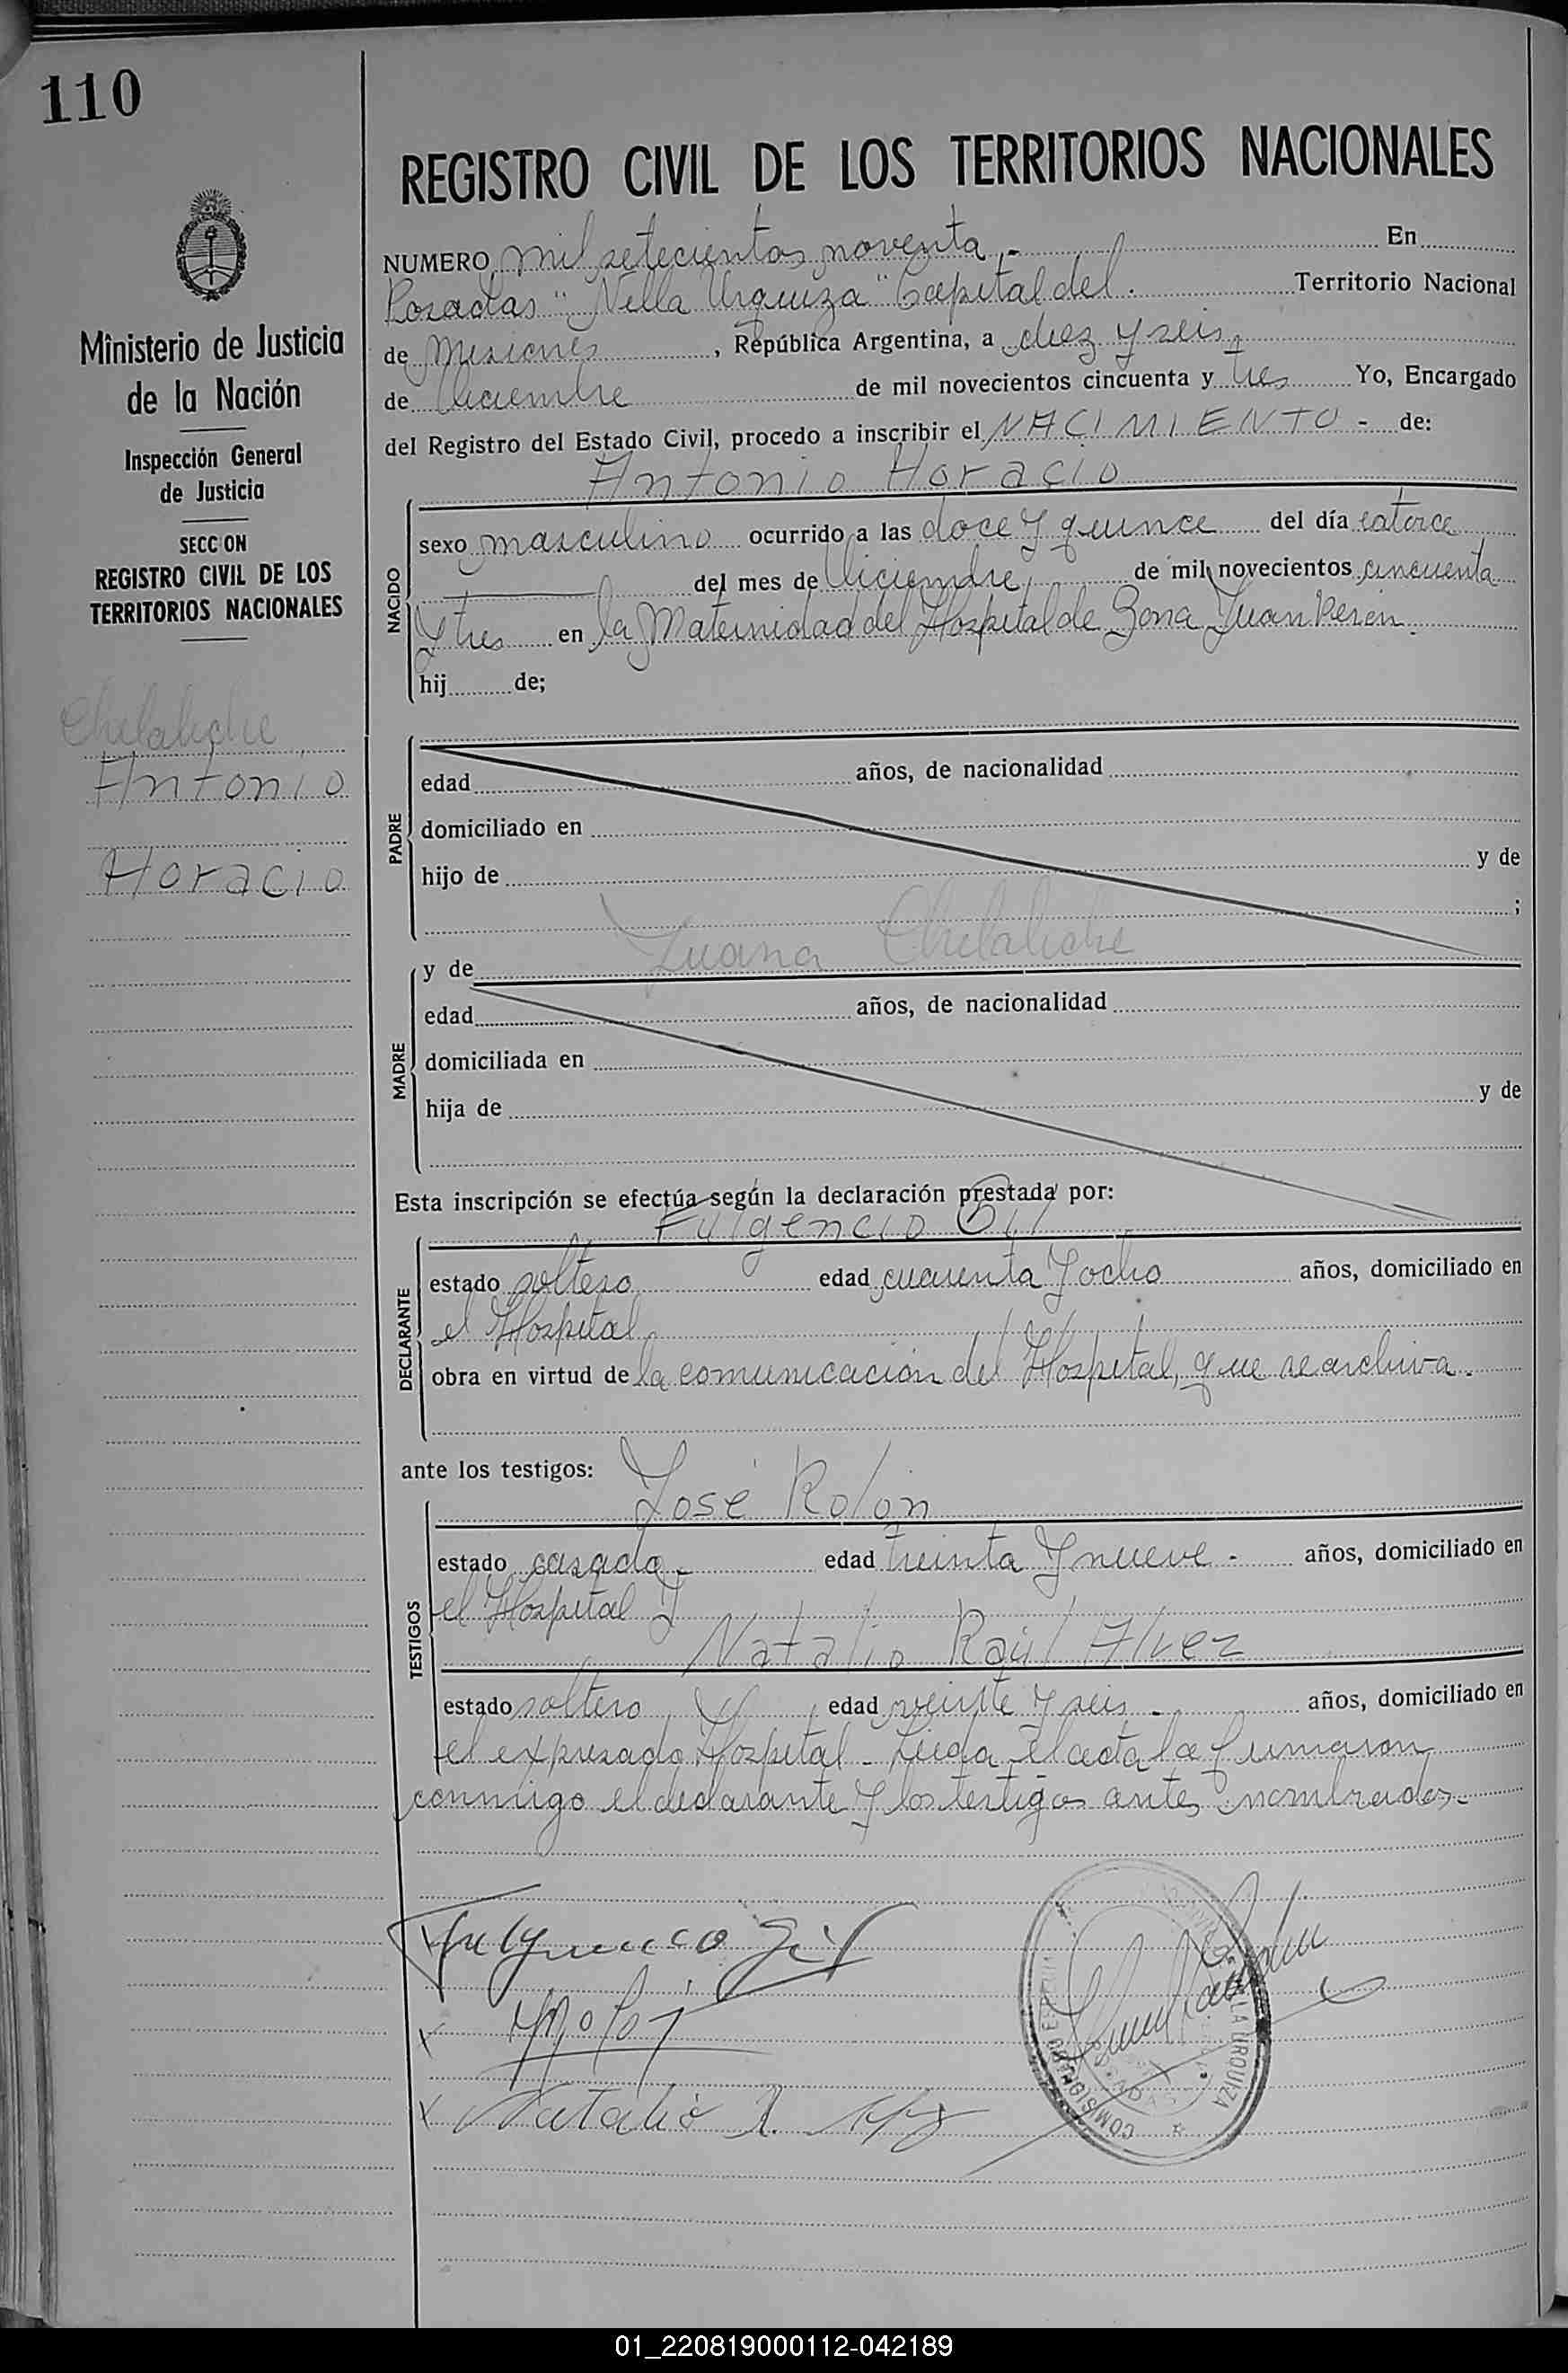 110
REGISTRO CIVIL DE LOS TERRITORIOS NACIONALES
NUMERO mil setecientos noventa.- En
Posadas "Villa Urquiza" Capital del Territorio Nacional
de Misiones, República Argentina, a diez y seis
de Diciembre de mil novecientos cincuenta y tres Yo, Encargado
del Registro del Estado Civil, procedo a inscribir el NACIMIENTO - de:
Antonio Horacio
Ministerio de Justicia
de la Nación
Inspección General
de Justicia
SECCION
REGISTRO CIVIL DE LOS
TERRITORIOS NACIONALES
Antonio
Horacio
NACIDO
sexo masculino ocurrido a las doce y quince del día catorce
del mes de Diciembre de mil novecientos cincuenta
y tres en la Maternidad del Hospital de Zona Juan Perón.
hij de;
PADRE
edad años, de nacionalidad
domiciliado en
hijo de y de
;
MADRE
y de Juana
edad años, de nacionalidad
domiciliada en
hija de y de
Esta inscripción se efectúa según la declaración prestada por:
Fulgencio Gil
DECLARANTE
estado soltero edad cuarenta y ocho años, domiciliado en
el Hospital
obra en virtud de la comunicación del Hospital, que se archiva.
ante los testigos:
José Rolon
TESTIGOS
estado casado.- edad treinta y nueve - años, domiciliado en
el Hospital y
Natalio Raúl Alvez
estado soltero edad veinte y seis.- años, domiciliado en
el expresado Hospital - Leida el acta la firmaron
conmigo el declarante y los testigos antes nombrados.-
Fulgencio Gil
Natalio R.
VILLA URQUIZA
POSADAS
01_220819000112-042189